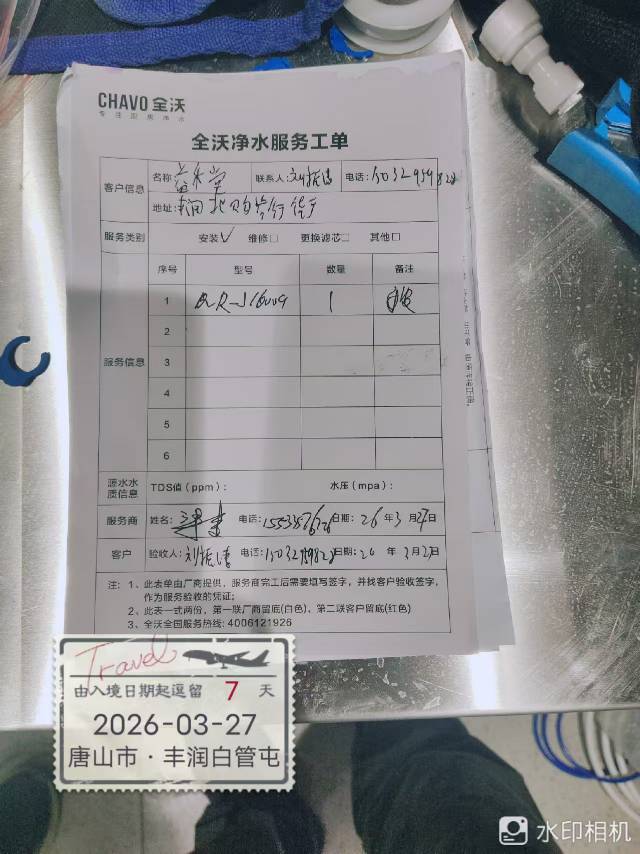 CHAVO 全沃
专注厨房净水
全沃净水服务工单
客户信息
名称: 联系人: 电话: 15032959828
地址: 丰润
服务类别 安装☑ 维修□ 更换滤芯□ 其他□
服务信息
序号 型号 数量 备注
1 1
2
3
4
5
6
源水水质信息 TDS值(ppm): 水压(mpa):
服务商 姓名: 电话: 日期: 26年3月27日
客户 验收人: 电话: 日期: 26年3月27日
注: 1、此表单由厂商提供, 服务商完工后需要填写签字, 并找客户验收签字,
作为服务验收的凭证;
2、此表一式两份, 第一联厂商留底(白色), 第二联客户留底(红色)
3、全沃全国服务热线: 4006121926
Travel
由入境日期起逗留 7 天
2026-03-27
唐山市·丰润白管屯
水印相机